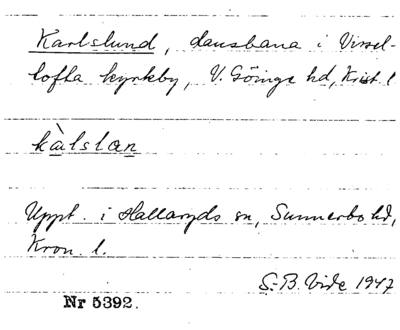 Karlslund, dansbana i Vissel-
tofta kyrkby, V. Göinge hd, Krist. l
kàlslan
Uppt. i Hallaryds sn, Sunnerbo hd,
Kron. l.
S.-B. Vide 1947
Nr 5392.